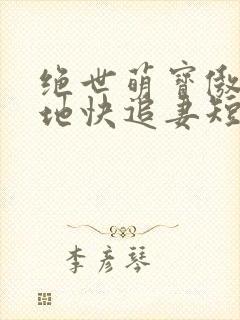 绝世萌宝傲
地快追妻短
李彦琴